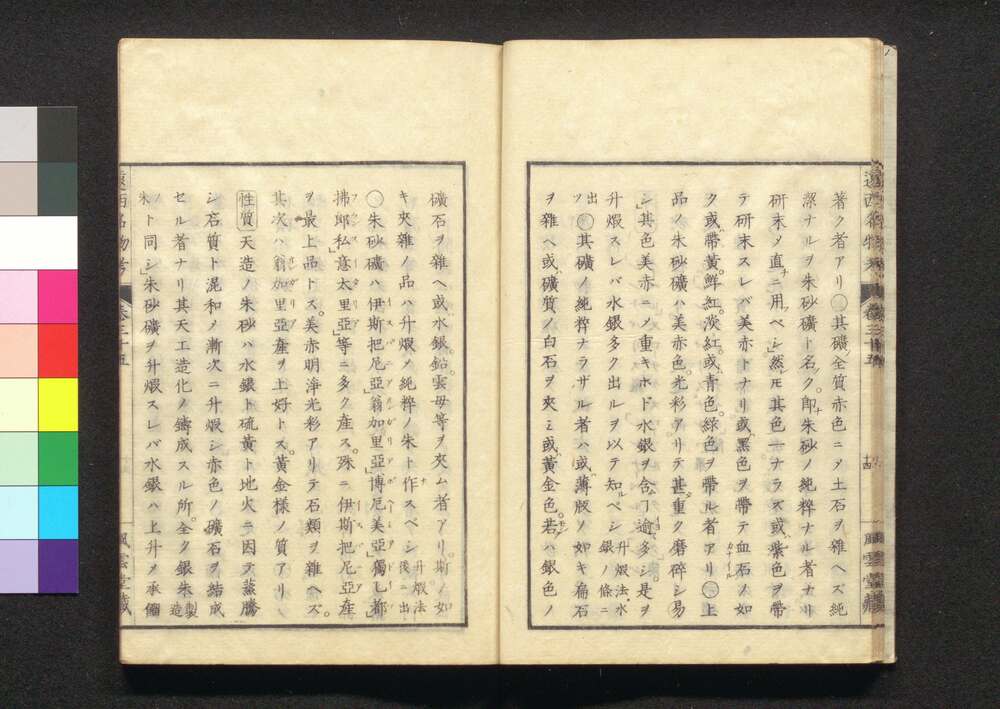 著ク者アリ○其礦全質赤色ニメ土石ヲ雑ヘズ純
潔ナルヲ朱砂礦ト名ク即朱砂ノ純粹ナル者ナリ
研末メ直ニ用フベシ然ㇾ𪜈其色一ナラズ或ハ紫色ヲ帶
テ研末スレバ美赤トナリ或ハ黑色ヲ帶テ血石ノ如
ク或ハ帶黄鮮紅淡紅或ハ青色綠色ヲ帶ル者アリ○上
品ノ朱砂礦ハ美赤色光彩アリテ甚ダ重ク磨碎シ易
シ其色美赤ニメ重キホド水銀ヲ含ヿ逾多シ是ヲ
升煆スレバ水銀多ク出ルヲ以テ知ルベシ 升煆法水銀ノ條ニ
出ツ ○其礦ノ純粹ナラザル者ハ或ハ薄版ノ如キ扁石
ヲ雑ヘ或ハ礦質ノ白石ヲ夾ミ或ハ黄金色若クハ銀色ノ
遠西名物考 卷三十五 十四 風雲堂藏
礦石ヲ雑ヘ或ハ水銀鉛雲母等ヲ夾ム者アリ斯ノ如
キ夾雑ノ品ハ升煆メ純粹ノ朱ト作スベシ 升煆法後ニ出
○朱砂礦ハ伊斯把尼亞翁加里亞博厄美亞
拂郎私意太里亞等ニ多ク産ス殊ニ伊斯把尼亞産
ヲ最上品トス美赤明淨光彩アリテ石類ヲ雑ヘズ
其次ハ翁加里亞産ヲ上好トス黄金様ノ質アリ
性質 天造ノ朱砂ハ水銀ト硫黄ト地火ニ因テ蒸騰
シ石質ト混和メ漸次ニ升煆シ赤色ノ礦石ヲ結成
セル者ナリ其天工造化ノ鑄成スル所全ク銀朱 製造
朱ノト同シ朱砂礦ヲ升煆スレバ水銀ハ上升メ承
遠西名物考 卷三十五 風雲堂藏